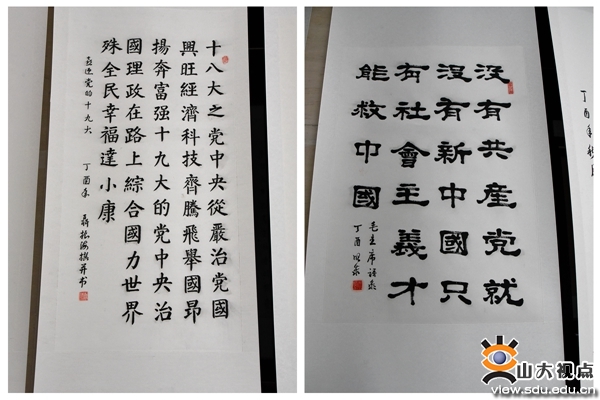 十八大之党中央從嚴治党國
興旺經濟科技齊騰飛舉國昂
揚奔富强十九大的党中央治
國理政在路上綜合國力世界
殊全民幸福達小康
喜迎党的十九大 丁酉年 聶振海撰并书
没有共産党就
没有新中國只
有社會主義才
能救中國
毛主席語录
丁酉
丁酉年秋月
山大视点
view.sdu.edu.cn